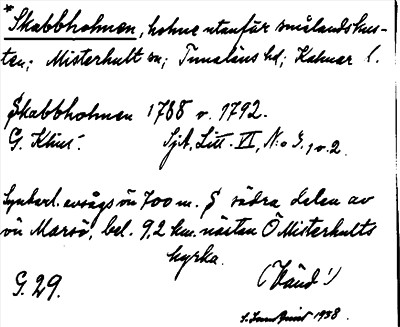 *Skabbholmen, holme utanför smålandskus-
ten; Misterhult sn; Tunaläns hd; Kalmar l.
Skabbholmen 1788 o. 1792.
G. Klint. Sjök, Litt. VI, N:o 3, 1 o. 2.
obetl. ö 700 m. S södra delen av
ön Marsö, bel. 9,2 km. nästan Ö Misterhults
kyrka.
G. 29. (Vänd!)
1938